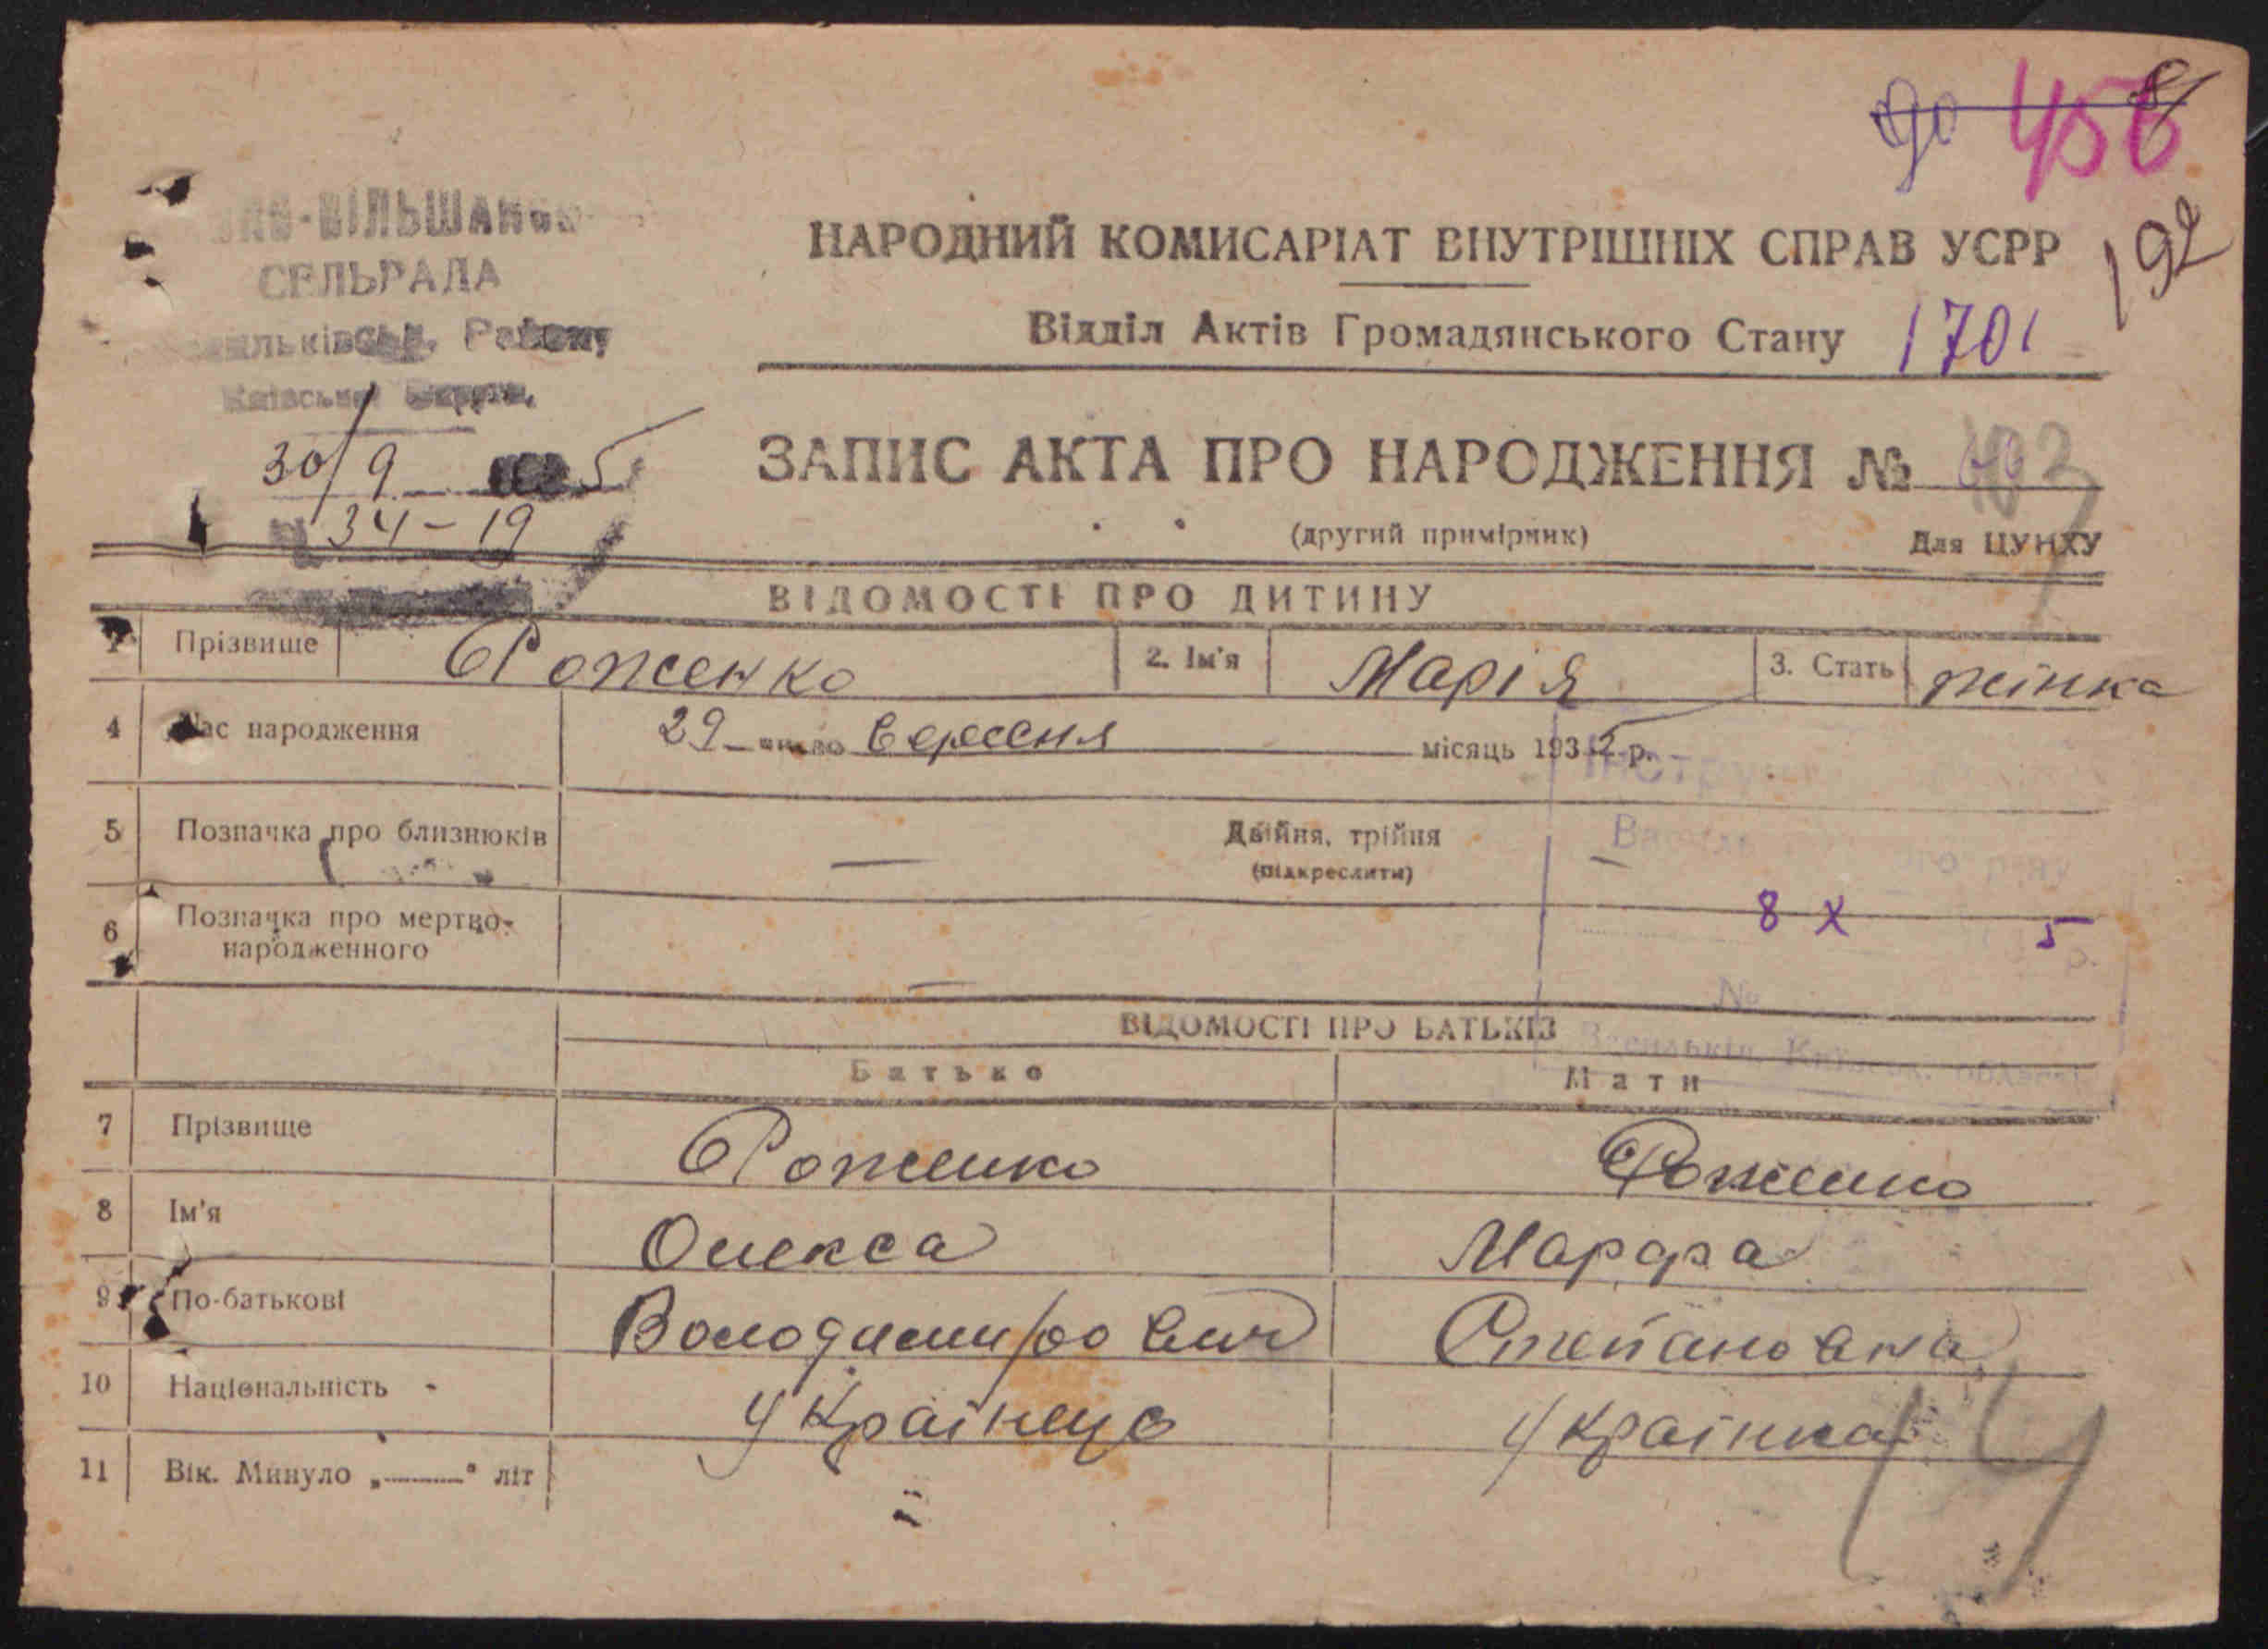 456
192
СЕЛЬРАДА
Району
30/9 5
34-19
НАРОДНИЙ КОМИСАРІАТ ВНУТРІШНІХ СПРАВ УСРР
Відділ Актів Громадянського Стану 1701
ЗАПИС АКТА ПРО НАРОДЖЕННЯ №
(другий примірник) Для ЦУНХУ
ВІДОМОСТІ ПРО ДИТИНУ
Прізвище Роженко 2. Ім'я Марія 3. Стать жінка
4 Час народження 29 число Вересня місяць 1935 р.
5 Позначка про близнюків — Двійня, трійня —
(підкреслити)
8 X 5
6 Позначка про мертво-
народженного —
р.
№
ВІДОМОСТІ ПРО БАТЬКІВ
Васильків, Київськ. області
Батько Мати
7 Прізвище Роженко Роженко
8 Ім'я Олекса Марфа
9 По-батькові Володимирович Степановна
10 Національність Українец Українка
11 Вік. Минуло „———" літ